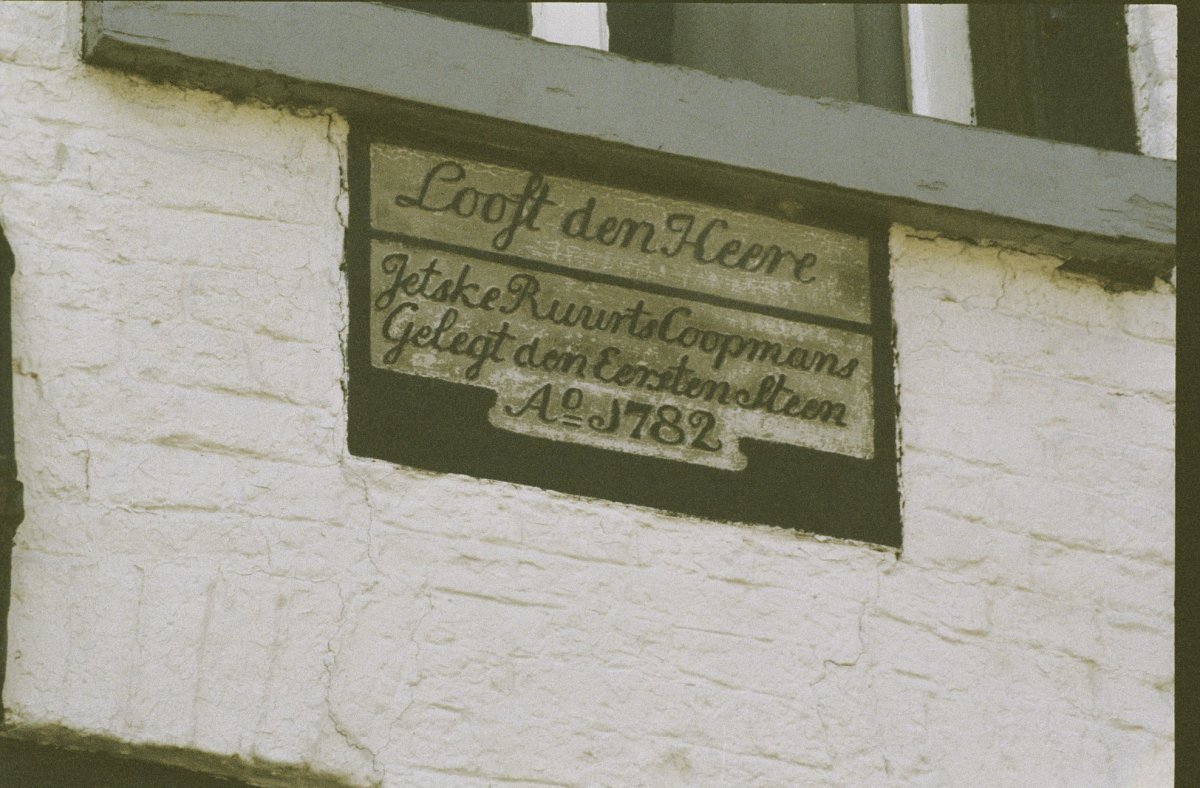 Looft den Heere
Jetske Ruurts Coopmans
Gelegt den Eersten Steen
Ao 1782